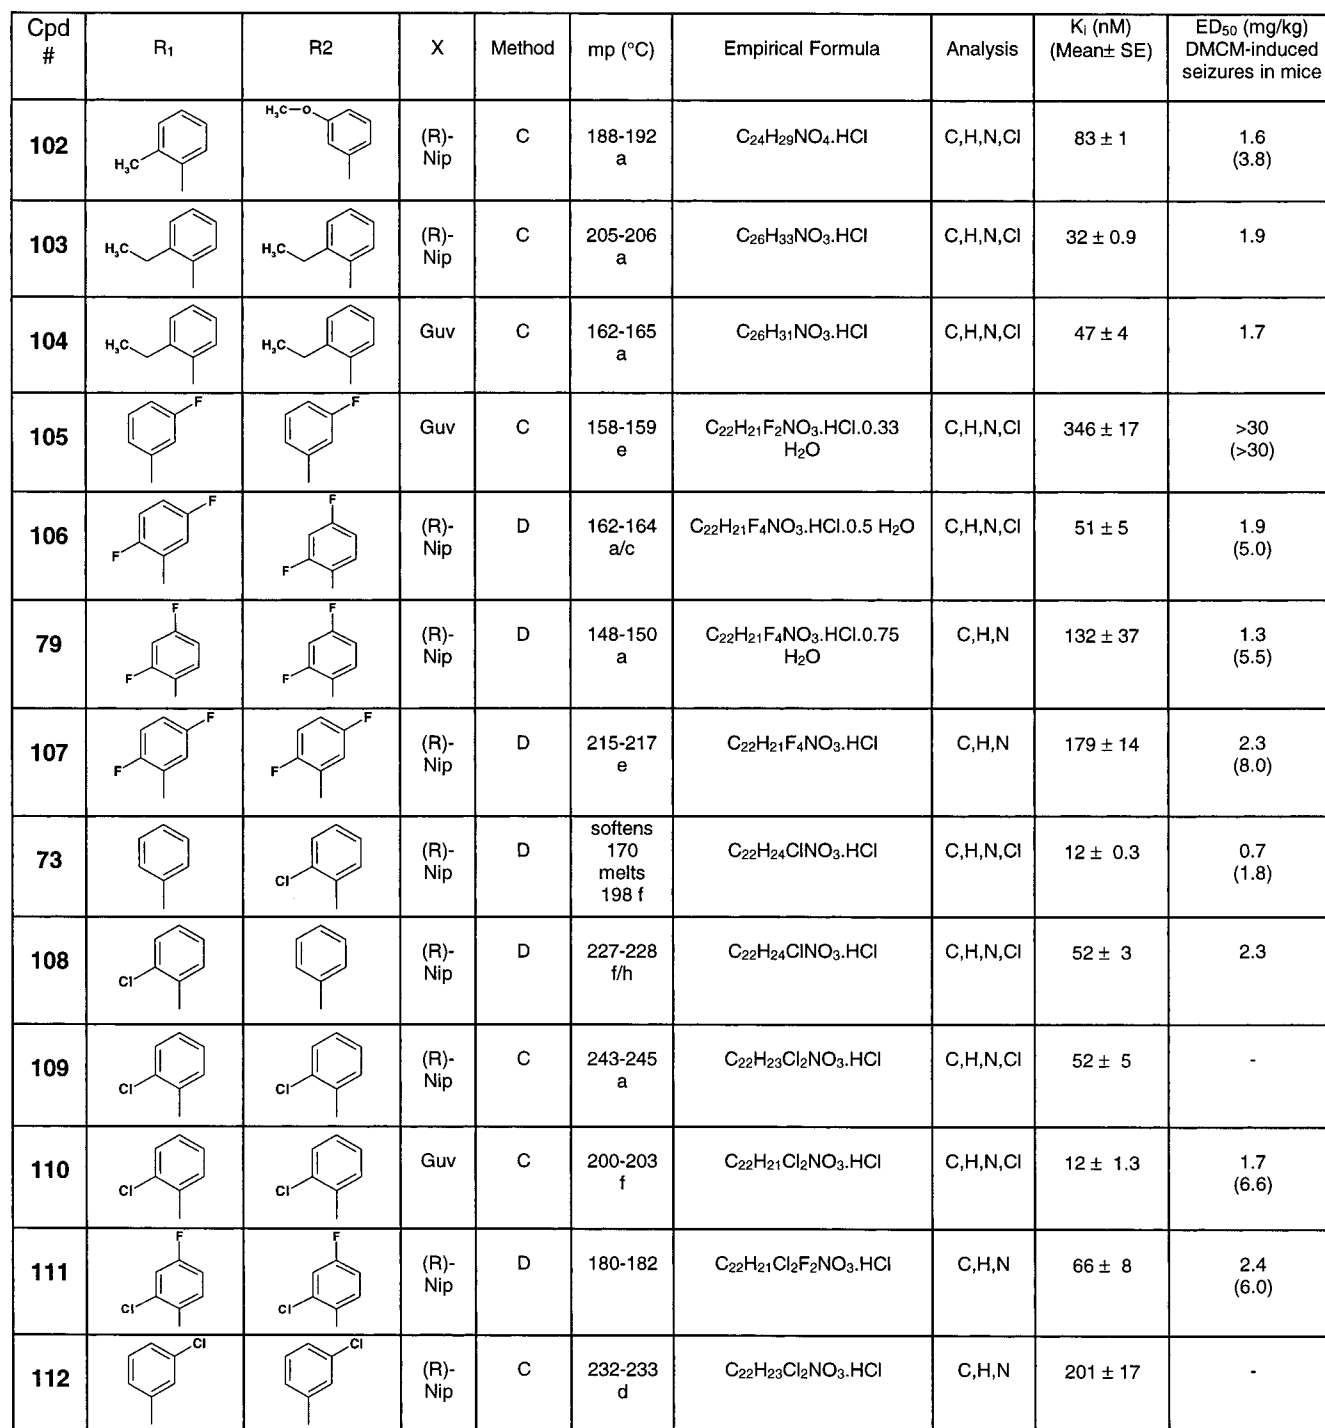 Cpd # R₁ R2 X Method mp (°C) Empirical Formula Analysis Kᵢ (nM) (Mean± SE) ED₅₀ (mg/kg) DMCM-induced seizures in mice
102 H₃C H₃C-O (R)-Nip C 188-192 a C₂₄H₂₉NO₄.HCl C,H,N,Cl 83 ± 1 1.6 (3.8)
103 H₃C H₃C (R)-Nip C 205-206 a C₂₆H₃₃NO₃.HCl C,H,N,Cl 32 ± 0.9 1.9
104 H₃C H₃C Guv C 162-165 a C₂₆H₃₁NO₃.HCl C,H,N,Cl 47 ± 4 1.7
105 F F Guv C 158-159 e C₂₂H₂₁F₂NO₃.HCl.0.33 H₂O C,H,N,Cl 346 ± 17 >30 (>30)
106 F F F F (R)-Nip D 162-164 a/c C₂₂H₂₁F₄NO₃.HCl.0.5 H₂O C,H,N,Cl 51 ± 5 1.9 (5.0)
79 F F F F (R)-Nip D 148-150 a C₂₂H₂₁F₄NO₃.HCl.0.75 H₂O C,H,N 132 ± 37 1.3 (5.5)
107 F F F F (R)-Nip D 215-217 e C₂₂H₂₁F₄NO₃.HCl C,H,N 179 ± 14 2.3 (8.0)
73 Cl (R)-Nip D softens 170 melts 198 f C₂₂H₂₄ClNO₃.HCl C,H,N,Cl 12 ± 0.3 0.7 (1.8)
108 Cl (R)-Nip D 227-228 f/h C₂₂H₂₄ClNO₃.HCl C,H,N,Cl 52 ± 3 2.3
109 Cl Cl (R)-Nip C 243-245 a C₂₂H₂₃Cl₂NO₃.HCl C,H,N,Cl 52 ± 5 -
110 Cl Cl Guv C 200-203 f C₂₂H₂₁Cl₂NO₃.HCl C,H,N,Cl 12 ± 1.3 1.7 (6.6)
111 F Cl F Cl (R)-Nip D 180-182 C₂₂H₂₁Cl₂F₂NO₃.HCl C,H,N 66 ± 8 2.4 (6.0)
112 Cl Cl (R)-Nip C 232-233 d C₂₂H₂₃Cl₂NO₃.HCl C,H,N 201 ± 17 -